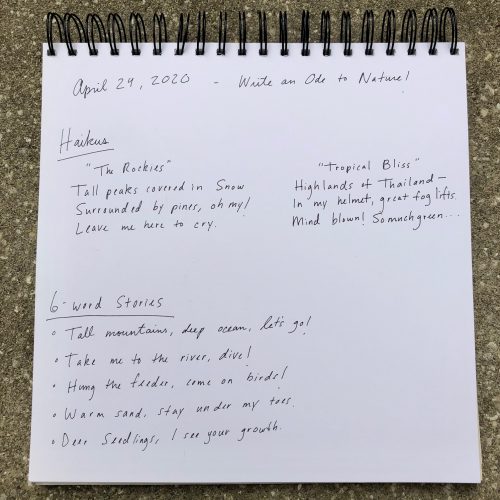 April 29, 2020 - Write an Ode to Nature!
Haikus
"The Rockies"
Tall peaks covered in Snow
Surrounded by pines, oh my!
Leave me here to cry.
"Tropical Bliss"
Highlands of Thailand—
In my helmet, great fog lifts
Mind blown! So much green...
6-word Stories
• Tall mountains, deep ocean, let's go!
• Take me to the river, dive!
• Hung the feeder, come on birds!
• Warm sand, stay under my toes.
• Dear Seedlings, I see your growth.